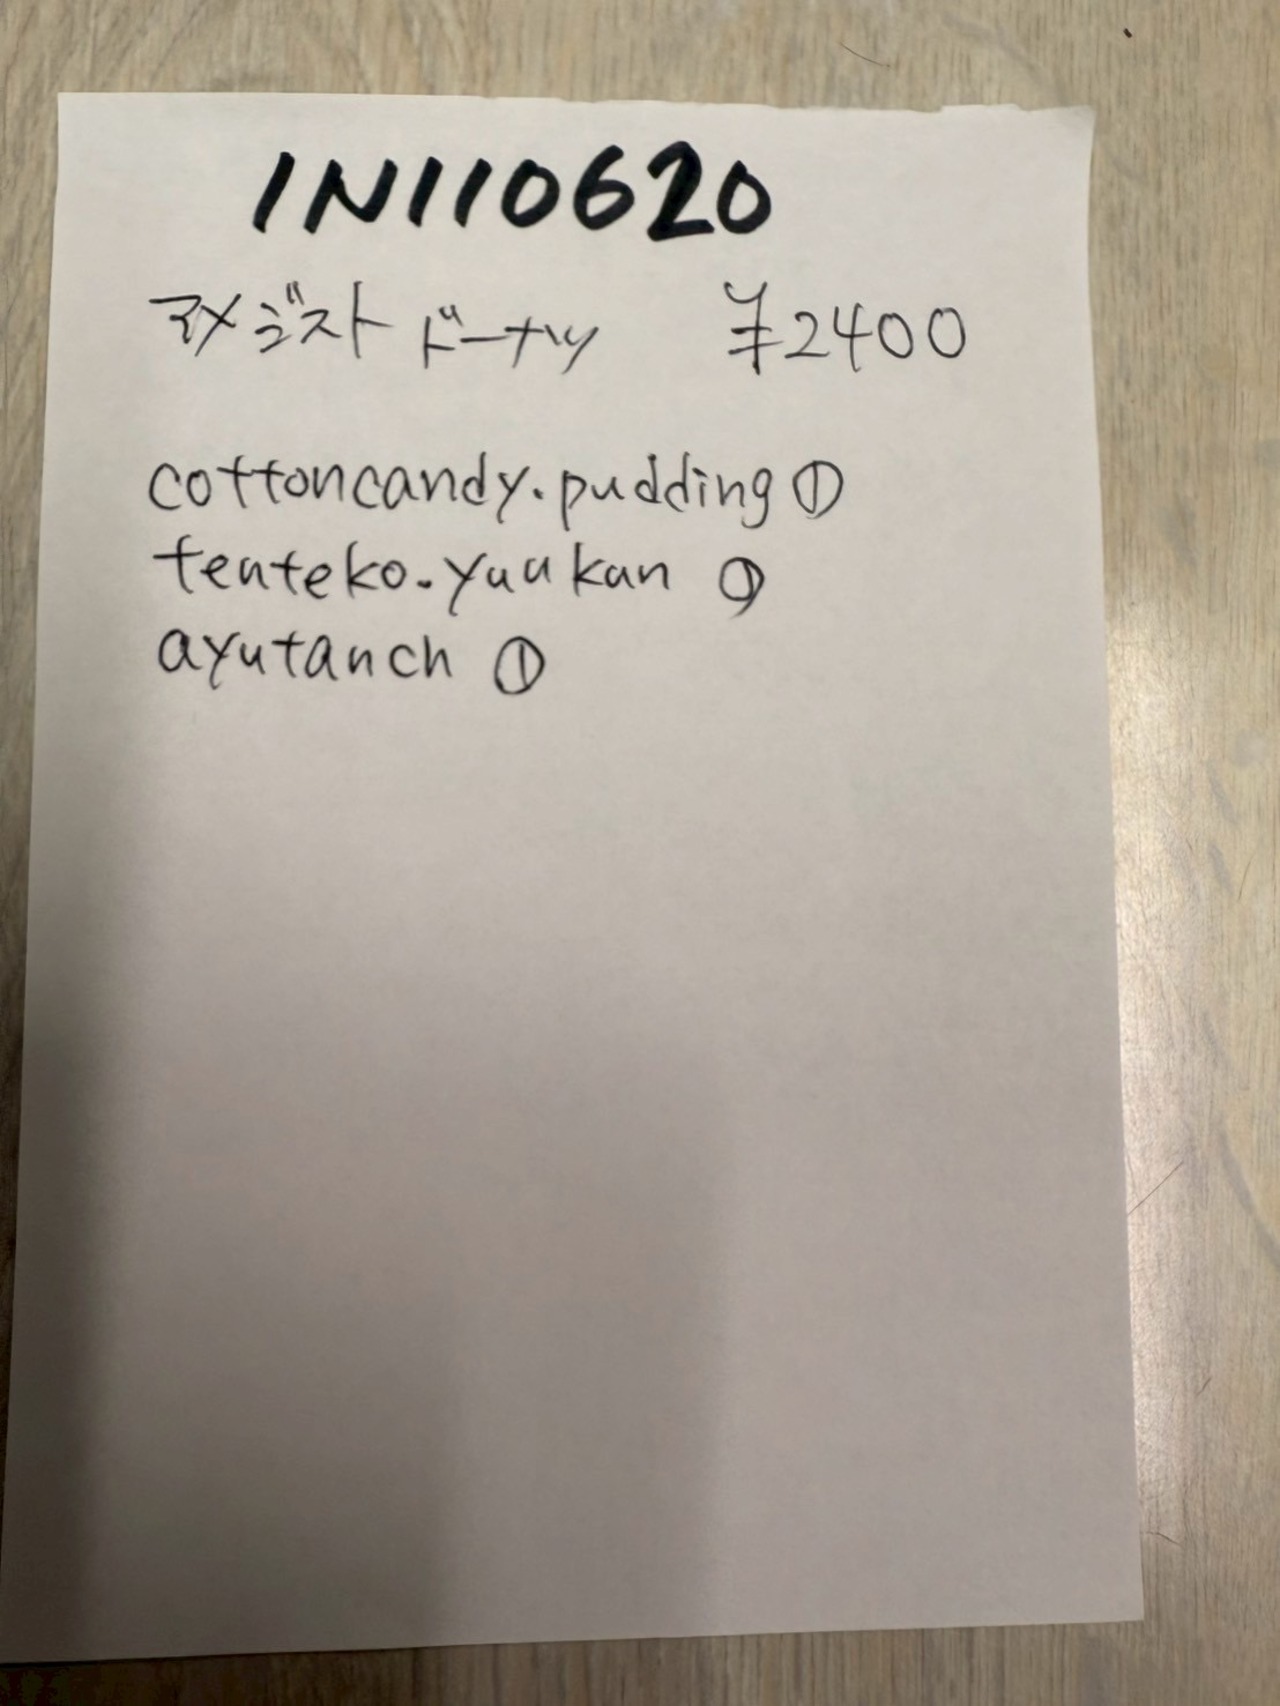 1N110620
アメジスト ドーナツ ¥2400
cottoncandy.pudding ①
tenteko.yuukan ①
ayutanch ①